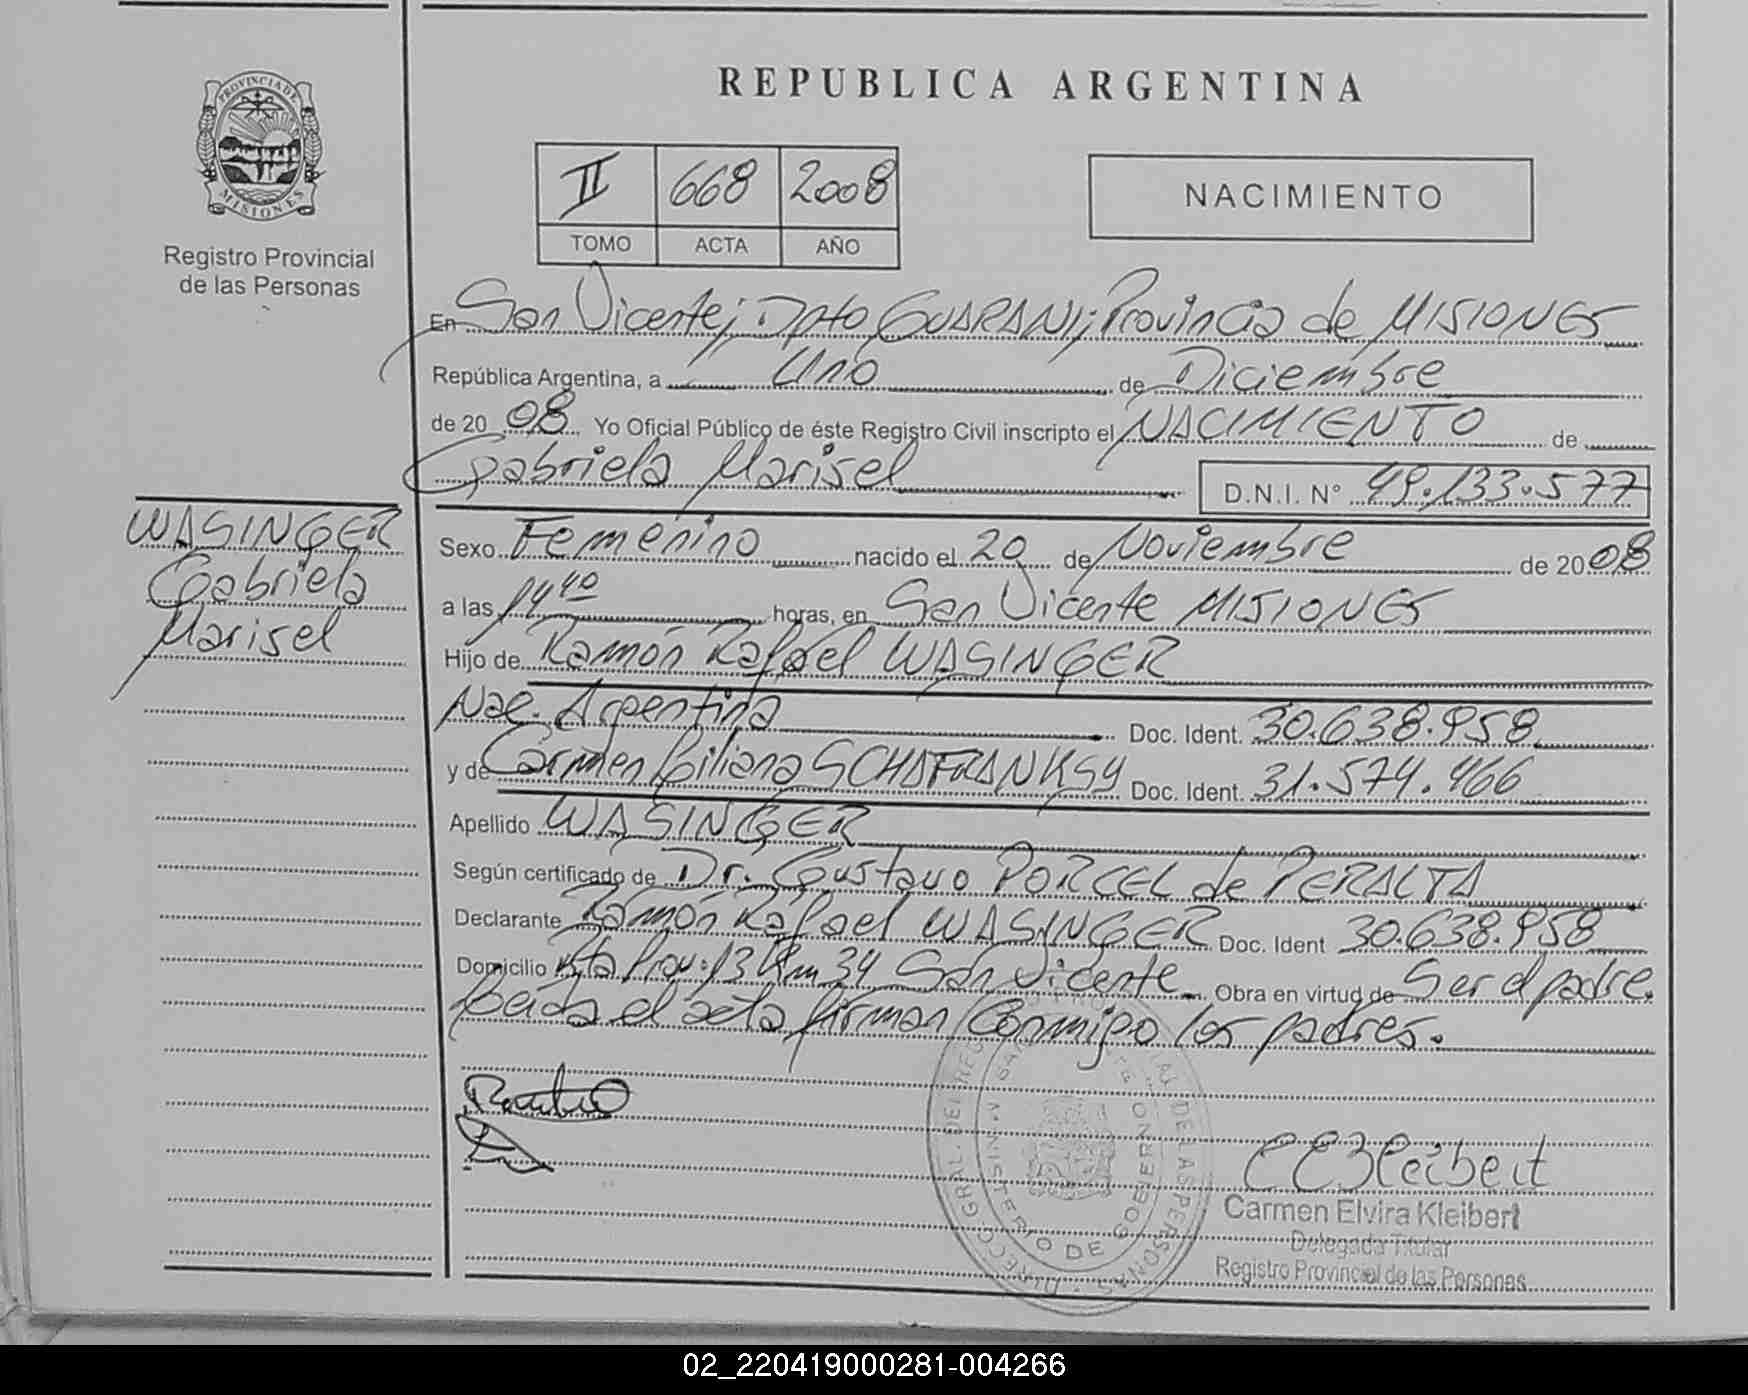 PROVINCIA DE
MISIONES
Registro Provincial
de las Personas
REPUBLICA ARGENTINA
II 668 2008
TOMO ACTA AÑO
NACIMIENTO
En San Vicente; Dpto GUARANI; Provincia de MISIONES
República Argentina, a Uno de Diciembre
de 20 08 Yo Oficial Público de éste Registro Civil inscripto el NACIMIENTO de
Gabriela Marisel D.N.I. N° 49.133.577
WASINGER
Gabriela
Marisel
Sexo Femenino nacido el 20 de Noviembre de 20 08
a las 14 40 horas, en San Vicente MISIONES
Hijo de Ramón Rafael WASINGER
Nac. Argentina Doc. Ident. 30.638.958
y de Carmen Liliana SCHAFRANKSY Doc. Ident. 31.574.466
Apellido WASINGER
Según certificado de Dr. Gustavo PORCEL de PERALTA
Declarante Ramón Rafael WASINGER Doc. Ident 30.638.958
Domicilio Rta Prov: 13 Km 34 San Vicente Obra en virtud de Ser el padre.
Leída el acta firman Conmigo los padres.
CEKleibert
Carmen Elvira Kleibert
Delegada Titular
Registro Provincial de las Personas
MINISTERIO DE GOBIERNO
02_220419000281-004266